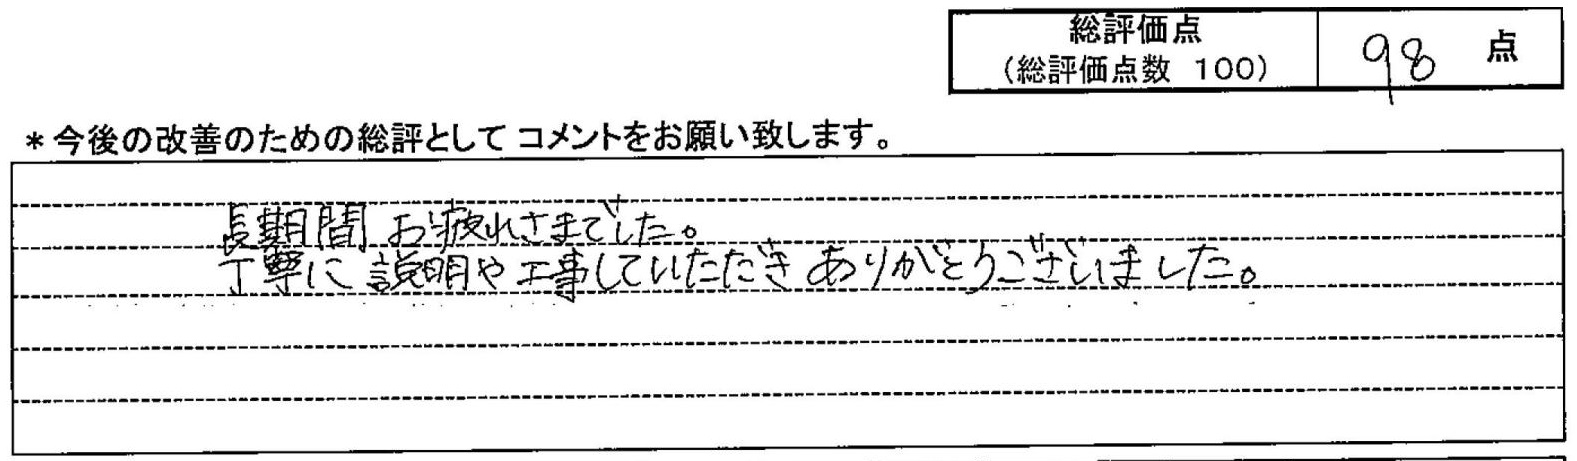 総評価点
(総評価点数 100)
98 点
*今後の改善のための総評として コメントをお願い致します。
長期間 お疲れさまでした。
丁寧に 説明や工事していただき ありがとうございました。